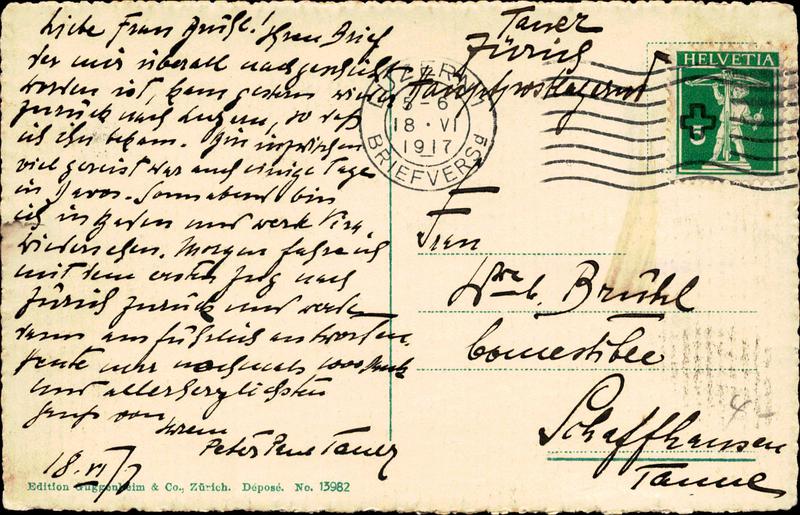 Liebe Frau Brühl! Ihren Brief
der mir überall nachgeschickt
worden ist, kam gestern wieder
zurück nach Luzern, so daß
ich ihn bekam. Bin inzwischen
viel gereist war auch einige Tage
in Davos. Sonnabend bin
ich in Baden und werde
wiedersehen. Morgen fahre ich
mit dem ersten Zug nach
Zürich zurück und werde
dann ausführlich antworten.
Heute nur nochmals 1000 Dank
und allerherzlichsten
Gruß von
Ihrem
Peter Paul Tauer
18. VI
Edition Guggenheim & Co., Zürich. Déposé. No. 13982
Tauer
Zürich
Hauptpostlagernd
LUZERN
5-6
18·VI
1917
BRIEFVERSD
HELVETIA
5
Frau
Wwe Brühl
Comestible
Schaffhausen
Tanne
4